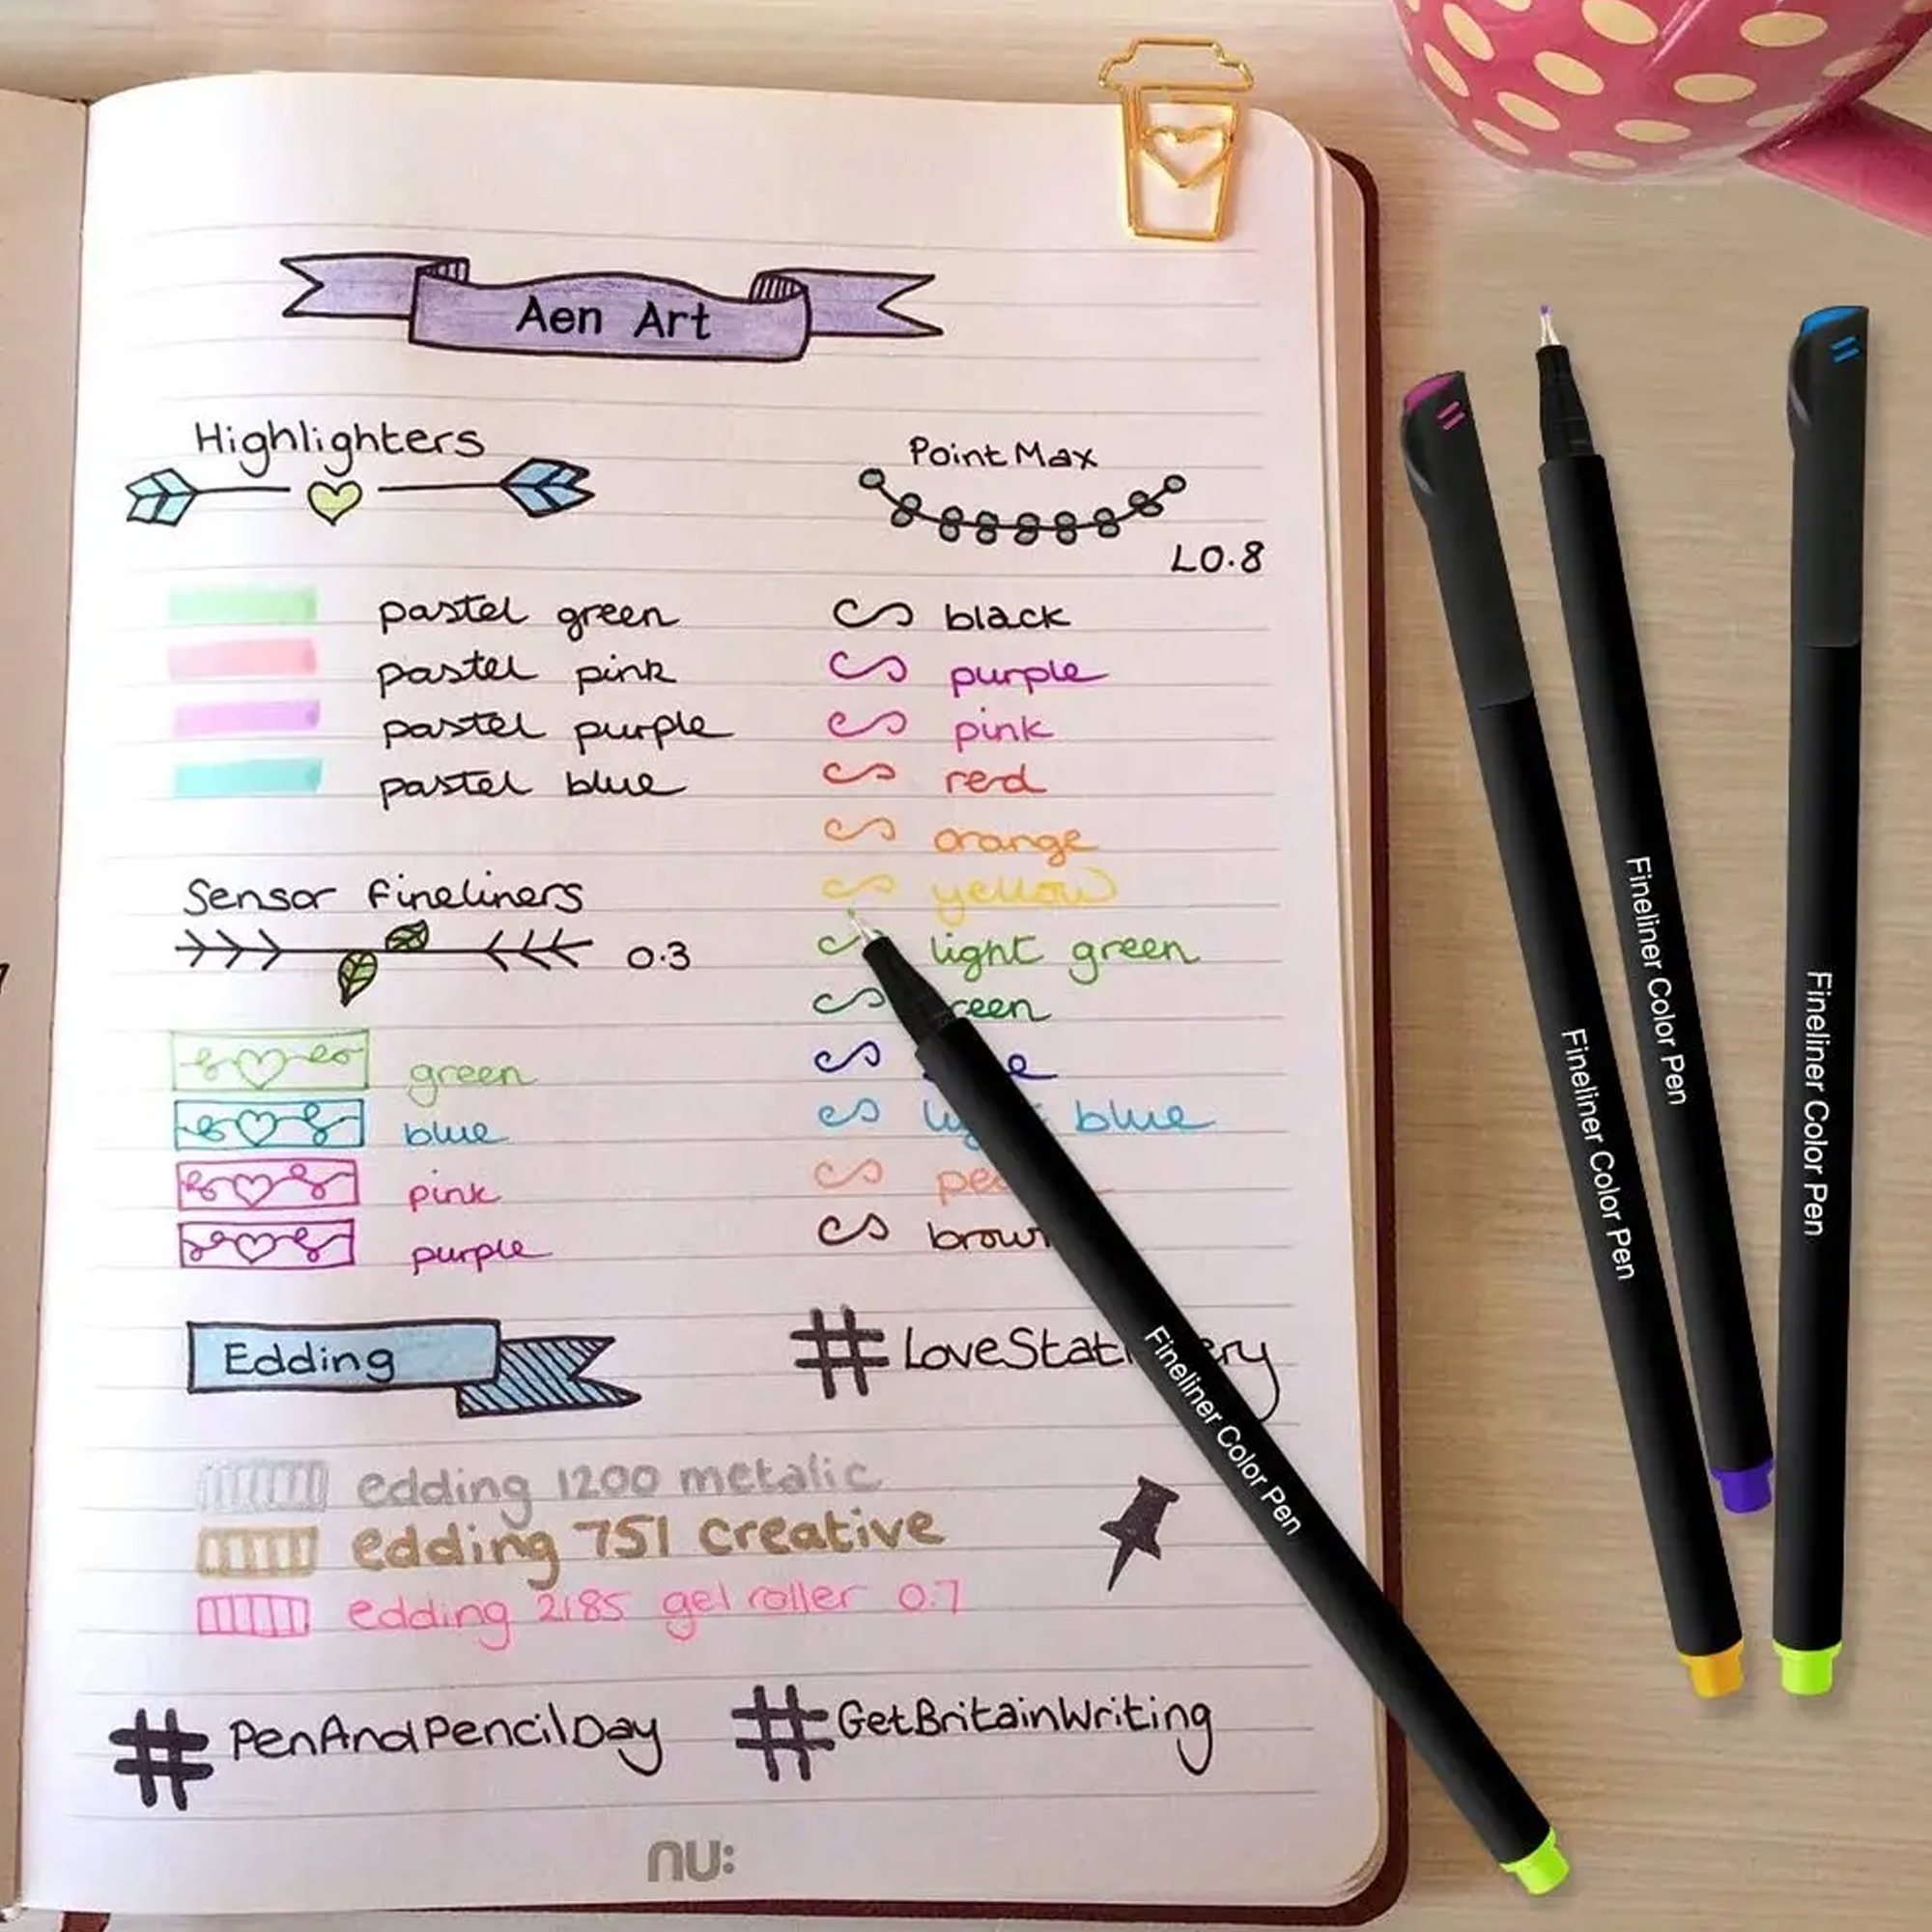 Aen Art
Highlighters
pastel green
pastel pink
pastel purple
pastel blue
Sensor fineliners
0.3
green
blue
pink
purple
Point Max
L0.8
black
purple
pink
red
orange
yellow
light green
blue
brown
Edding
edding 1200 metalic
edding 751 creative
edding 2185 gel roller 0.7
#PenAndPencilDay
#GetBritainWriting
nu:
Fineliner Color Pen
Fineliner Color Pen
Fineliner Color Pen
Fineliner Color Pen